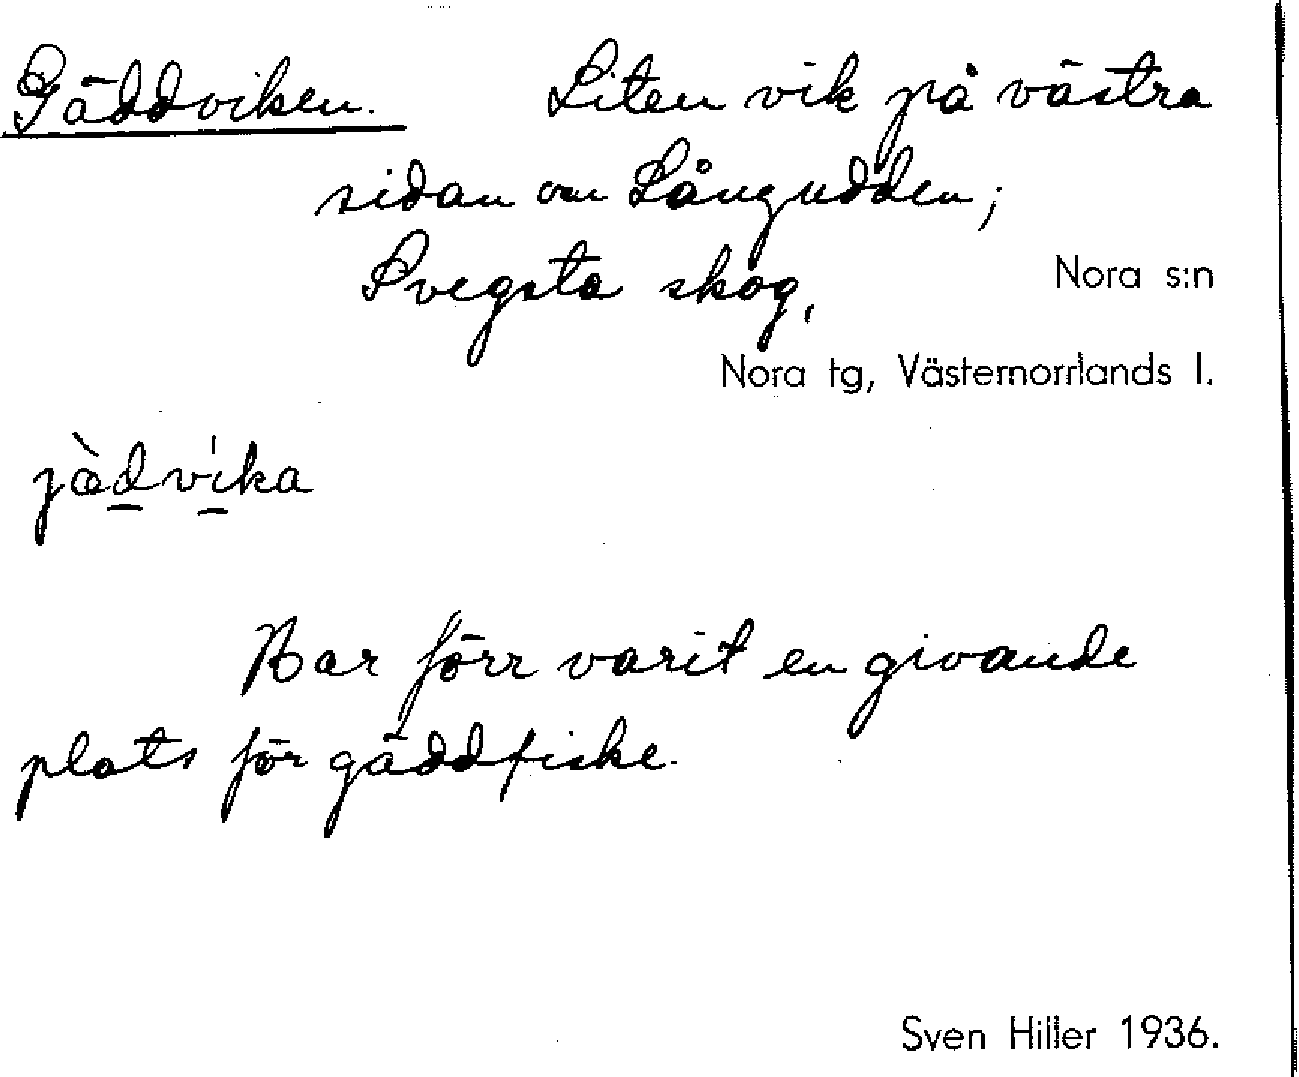 Gäddviken. Liten vik på västra
sidan om Långudden;
Svegsta skog, Nora s:n
Nora tg, Västernorrlands l.
jæ̀d̲vi̲̍ka
Har förr varit en givande
plats för gäddfiske.
Sven Hiller 1936.